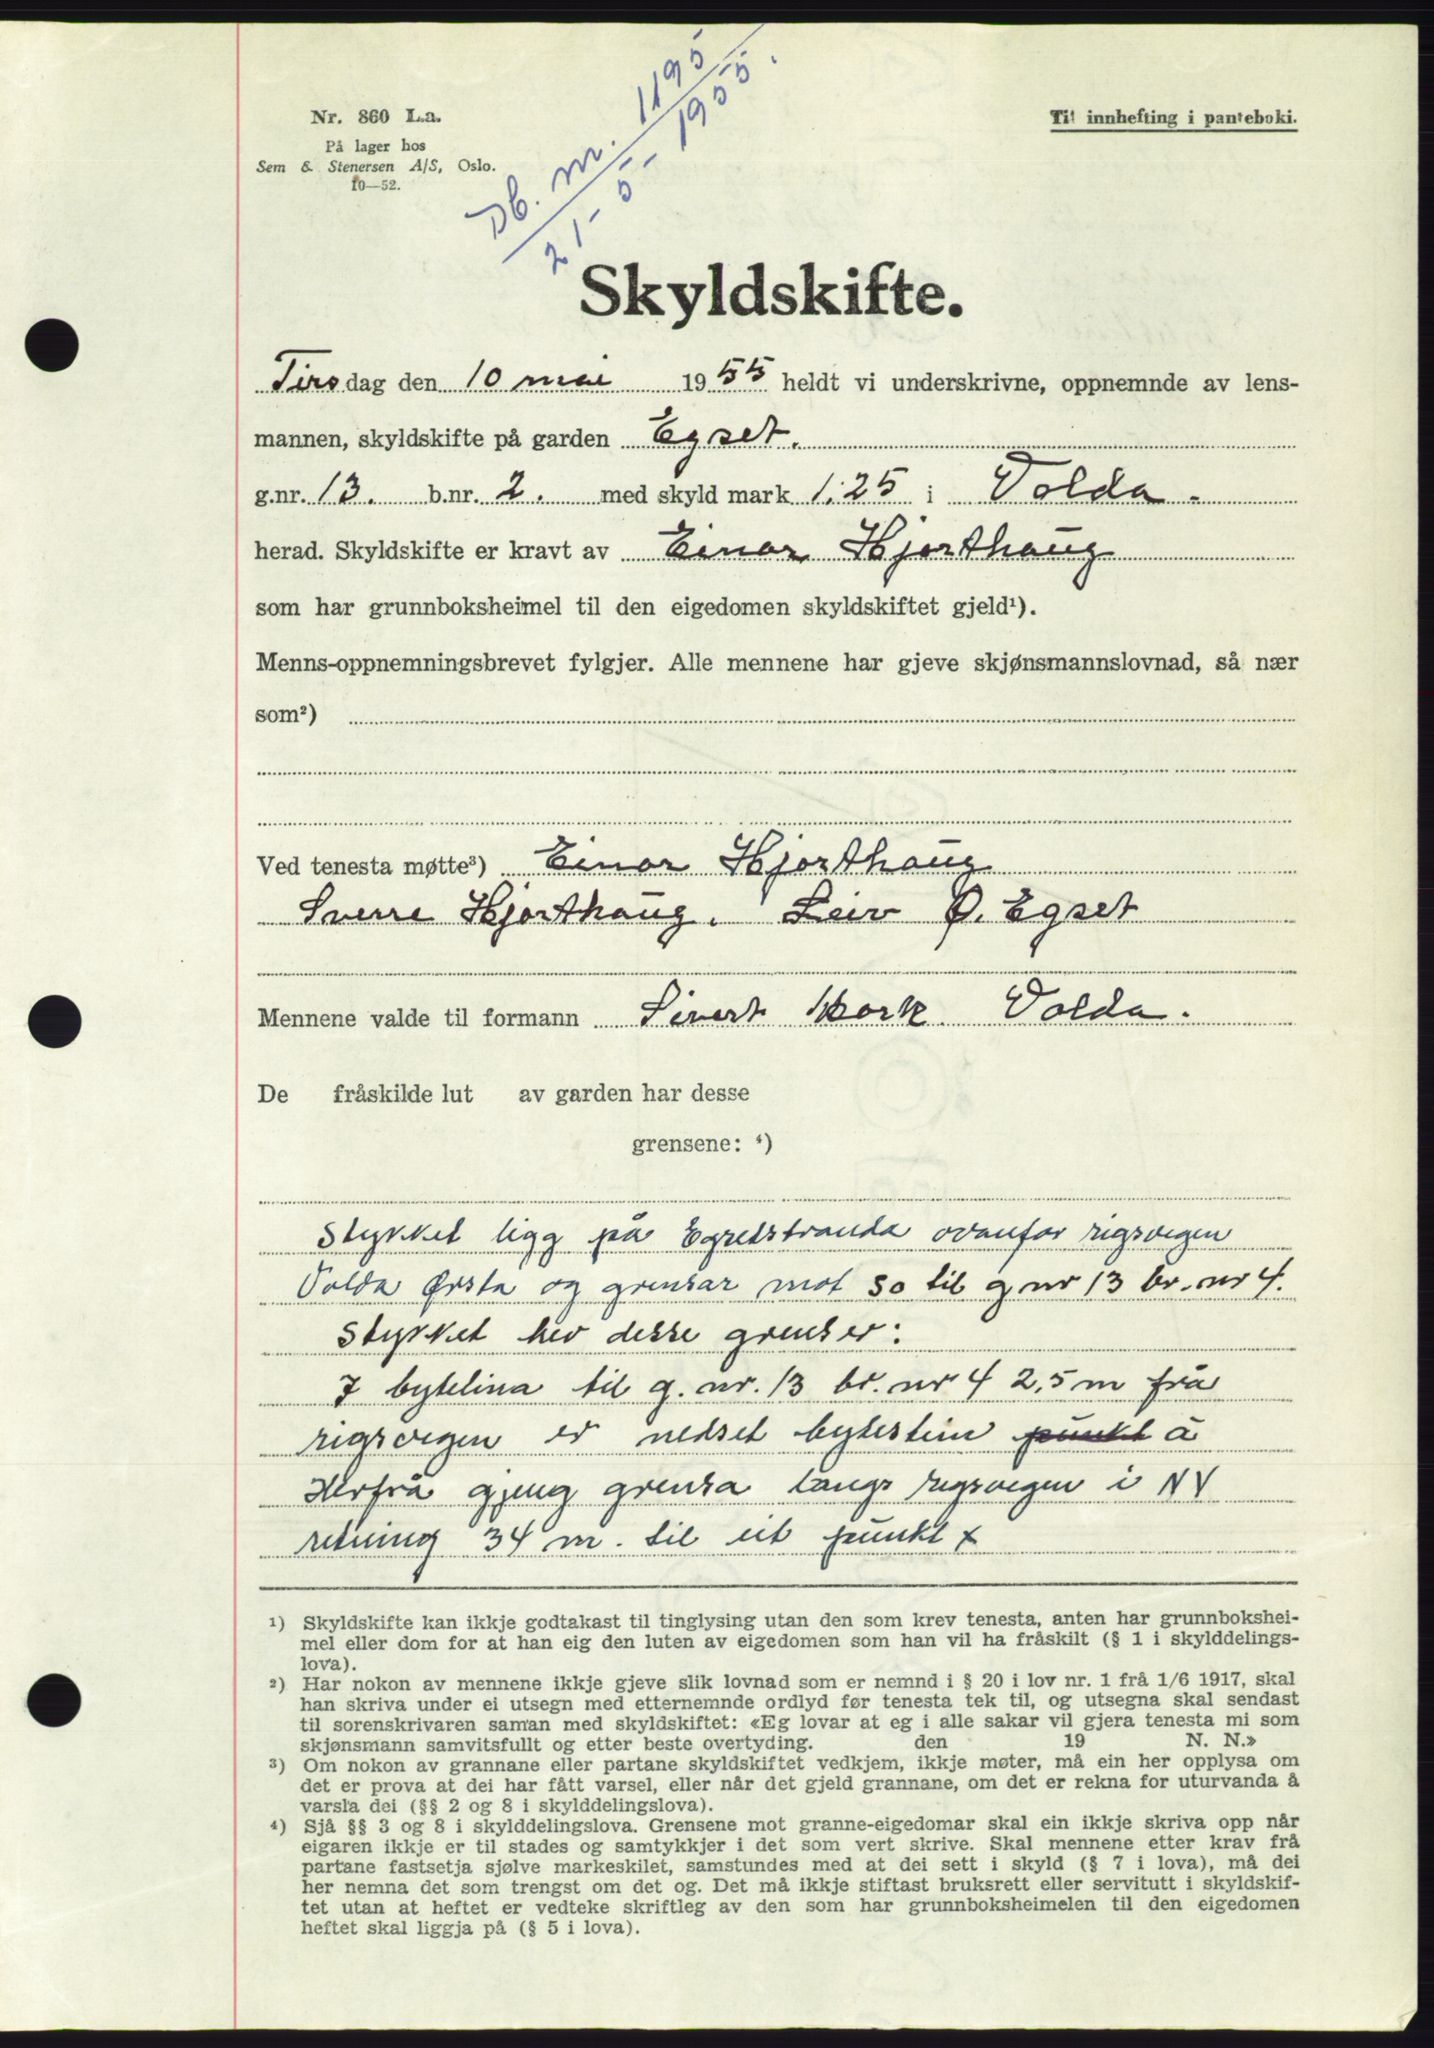 Db. nr. 1195
21-5-1955.
Nr. 860 L.a.
På lager hos
Sem & Stenersen A/S, Oslo.
10—52.
Til innhefting i panteboki.
Skyldskifte.
Tirsdag den 10 mai 1955 heldt vi underskrivne, oppnemnde av lens-
mannen, skyldskifte på garden Egset.
g.nr. 13. b.nr. 2. med skyld mark 1.25 i Volda.
herad. Skyldskifte er kravt av Einar Hjorthaug
som har grunnboksheimel til den eigedomen skyldskiftet gjeld¹).
Menns-oppnemningsbrevet fylgjer. Alle mennene har gjeve skjønsmannslovnad, så nær
som²)
Ved tenesta møtte³) Einar Hjorthaug
Sverre Hjorthaug. Leiv Ø. Egset
Mennene valde til formann Sivert Mork Volda.
De fråskilde lut av garden har desse
grensene: ⁴)
Stykket ligg på Egsetstranda ovanfor rigsvegen
Volda Ørsta og grensar mot so til g nr 13 br. nr 4.
Stykket hev desse grenser:
I bytelina til g. nr. 13 br. nr 4 2,5 m frå
rigsvegen er nedset bytestein punkt a
Herfrå gjeng grensa langs rigsvegen i NV
retning 34 m. til eit punkt x
¹) Skyldskifte kan ikkje godtakast til tinglysing utan den som krev tenesta, anten har grunnbokshei-
mel eller dom for at han eig den luten av eigedomen som han vil ha fråskilt (§ 1 i skylddelings-
lova).
²) Har nokon av mennene ikkje gjeve slik lovnad som er nemnd i § 20 i lov nr. 1 frå 1/6 1917, skal
han skriva under ei utsegn med etternemnde ordlyd før tenesta tek til, og utsegna skal sendast
til sorenskrivaren saman med skyldskiftet: «Eg lovar at eg i alle sakar vil gjera tenesta mi som
skjønsmann samvitsfullt og etter beste overtyding. den 19 N. N.»
³) Om nokon av grannane eller partane skyldskiftet vedkjem, ikkje møter, må ein her opplysa om
det er prova at dei har fått varsel, eller når det gjeld grannane, om det er rekna for uturvanda å
varsla dei (§§ 2 og 8 i skylddelingslova).
⁴) Sjå §§ 3 og 8 i skylddelingslova. Grensene mot granne-eigedomar skal ein ikkje skriva opp når
eigaren ikkje er til stades og samtykkjer i det som vert skrive. Skal mennene etter krav frå
partane fastsetja sjølve markeskilet, samstundes med at dei sett i skyld (§ 7 i lova), må dei
her nemna det som trengst om det og. Det må ikkje stiftast bruksrett eller servitutt i skyldskif-
tet utan at heftet er vedteke skriftleg av den som har grunnboksheimelen til den eigedomen
heftet skal liggja på (§ 5 i lova).